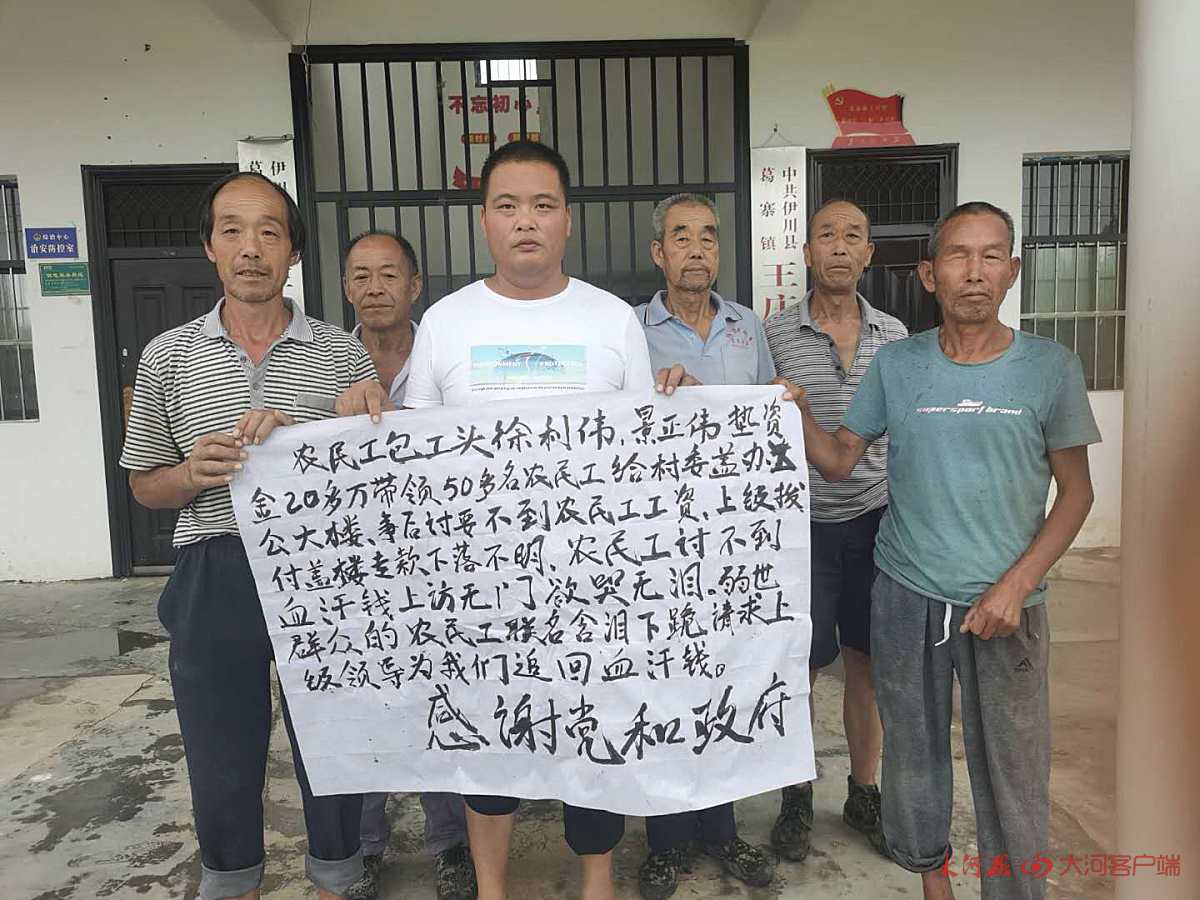 不忘初心
伊川
葛
综治中心
治安防控室
中共伊川县
葛寨镇
王庄
supersport brand
农民工包工头徐利伟，景亚伟垫资
金20多万带领50多名农民工给村委盖办
公大楼、事后讨要不到农民工工资，上级拨
付盖楼专款下落不明、农民工讨不到
血汗钱上访无门欲哭无泪。弱世
群众的农民工联名含泪下跪请求上
级领导为我们追回血汗钱。
感谢党和政府
大河报 大河客户端